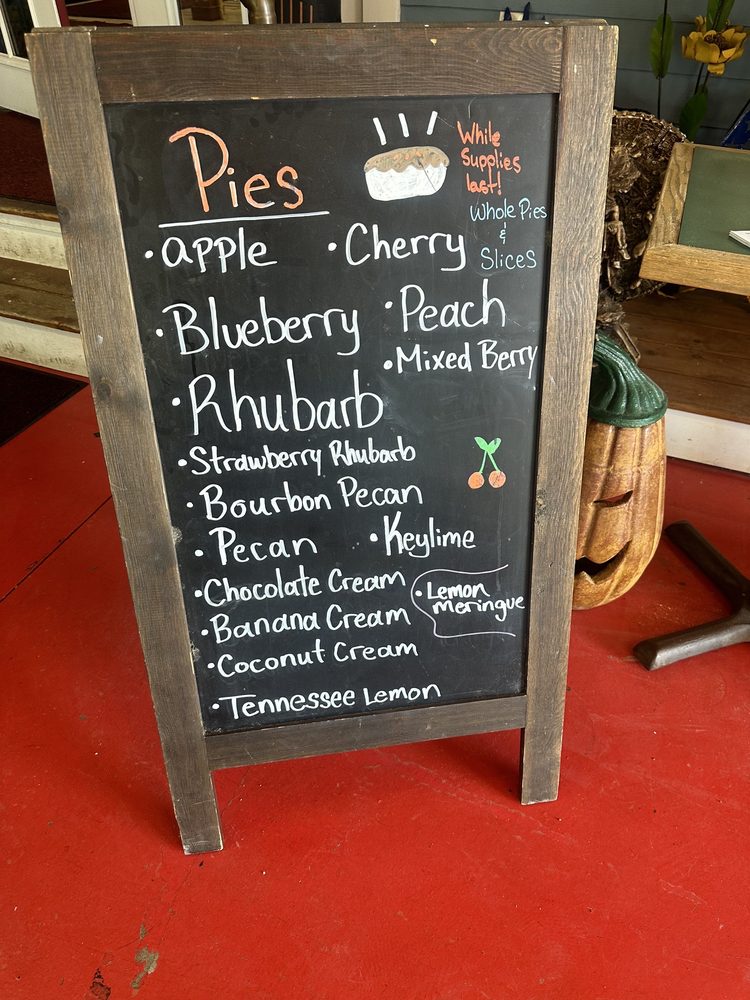 Pies
While
Supplies
last!
Whole Pies
&
Slices
• apple
• Cherry
• Blueberry
• Peach
• Mixed Berry
• Rhubarb
• Strawberry Rhubarb
• Bourbon Pecan
• Pecan
• Keylime
• Chocolate Cream
• Lemon
meringue
• Banana Cream
• Coconut Cream
• Tennessee Lemon